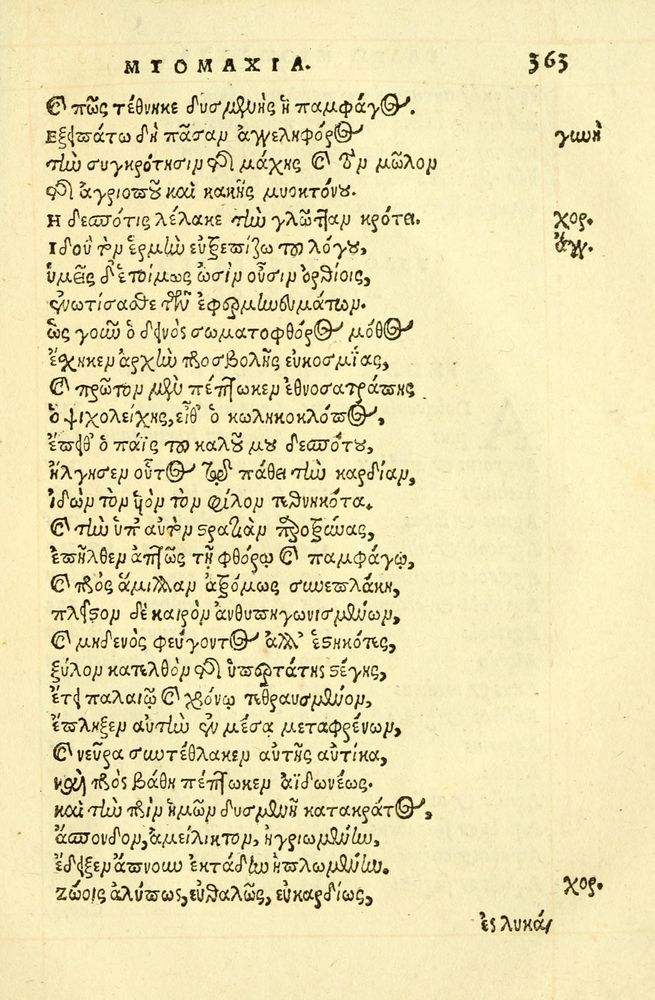 ΜΥΟΜΑΧΙΑ. 363
καὶ πῶς τέθνηκε δυσμενὴς ἡ παμφάγος.
Εξειπάτω δὴ πᾶσαν ἀγγεληφόρος γυνὴ
τὴν συγκρότησιν τῆς μάχης καὶ τὸν μῶλον
τῆς ἀγριοποῦ καὶ κακῆς μυοκτόνου.
Η δεσπότις λέλακε τὴν γλῶτταν κρότει. χορ.
Ιδοὺ τὸν εἱρμὸν εὐξεπίζω τοῦ λόγου, ἄγγ.
ὑμεῖς δ' ἑτοίμως ὠσὶν οὖσιν ὀρθίοις,
ἐνωτίσασθε τῶν ἐφερμηνευμάτων.
ὡς γοῦν ὁ δεινὸς σωματοφθόρος μόθος
ἔσχηκεν ἀρχὴν προσβολῆς εὐκοσμίας,
καὶ πρῶτον μὲν πέπτωκεν ἐθνοσατράπης
ὁ ψιχολείχης, εἶθ' ὁ κωληκοκλόπος,
ἔπειθ' ὁ παῖς τοῦ καλοῦ μου δεσπότου,
ἤλγησεν οὗτος τῷ πάθει τὴν καρδίαν,
ἰδὼν τὸν υἱὸν τὸν φίλον τεθνηκότα.
καὶ τὴν ὑπ' αὐτὸν στρατιὰν προξείνας,
ἐπῆλθεν ἁπλῶς τῇ φθόρῳ καὶ παμφάγῳ,
καὶ πρὸς ἅμιλλαν ἀξόμως συνεπλάκη,
πλεῖστον δὲ καιρὸν ἀνθυπηγωνισμένων,
καὶ μηδενὸς φεύγοντος ἀλλ' ἑστηκότες,
ξύλον κατελθὸν τῆς ὑπερτάτης στέγης,
ἔτει παλαιῷ καὶ χρόνῳ τεθραυσμένον,
ἔπληξεν αὐτὴν ἐν μέσᾳ μεταφρένων,
καὶ νεῦρα συντέθλακεν αὐτῆς αὐτίκα,
καὶ πρὸς βάθη πέπτωκεν ἀϊδωνέως.
καὶ τὴν πρὶν ἡμῶν δυσμενῆ κατακράτος,
ἄσπονδον, ἀμείλικτον, ἠγριωμένην,
ἔδειξεν ἄπνουν ἐκτάδην ἡπλωμένην.
Ζώοις ἀλύπως, εὐθαλῶς, εὐκαρδίως, χορ.
ἐς λυκά/